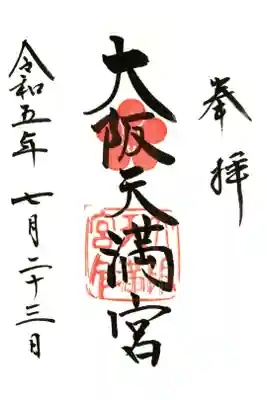 奉拝
大阪天満宮
令和五年 七月二十三日